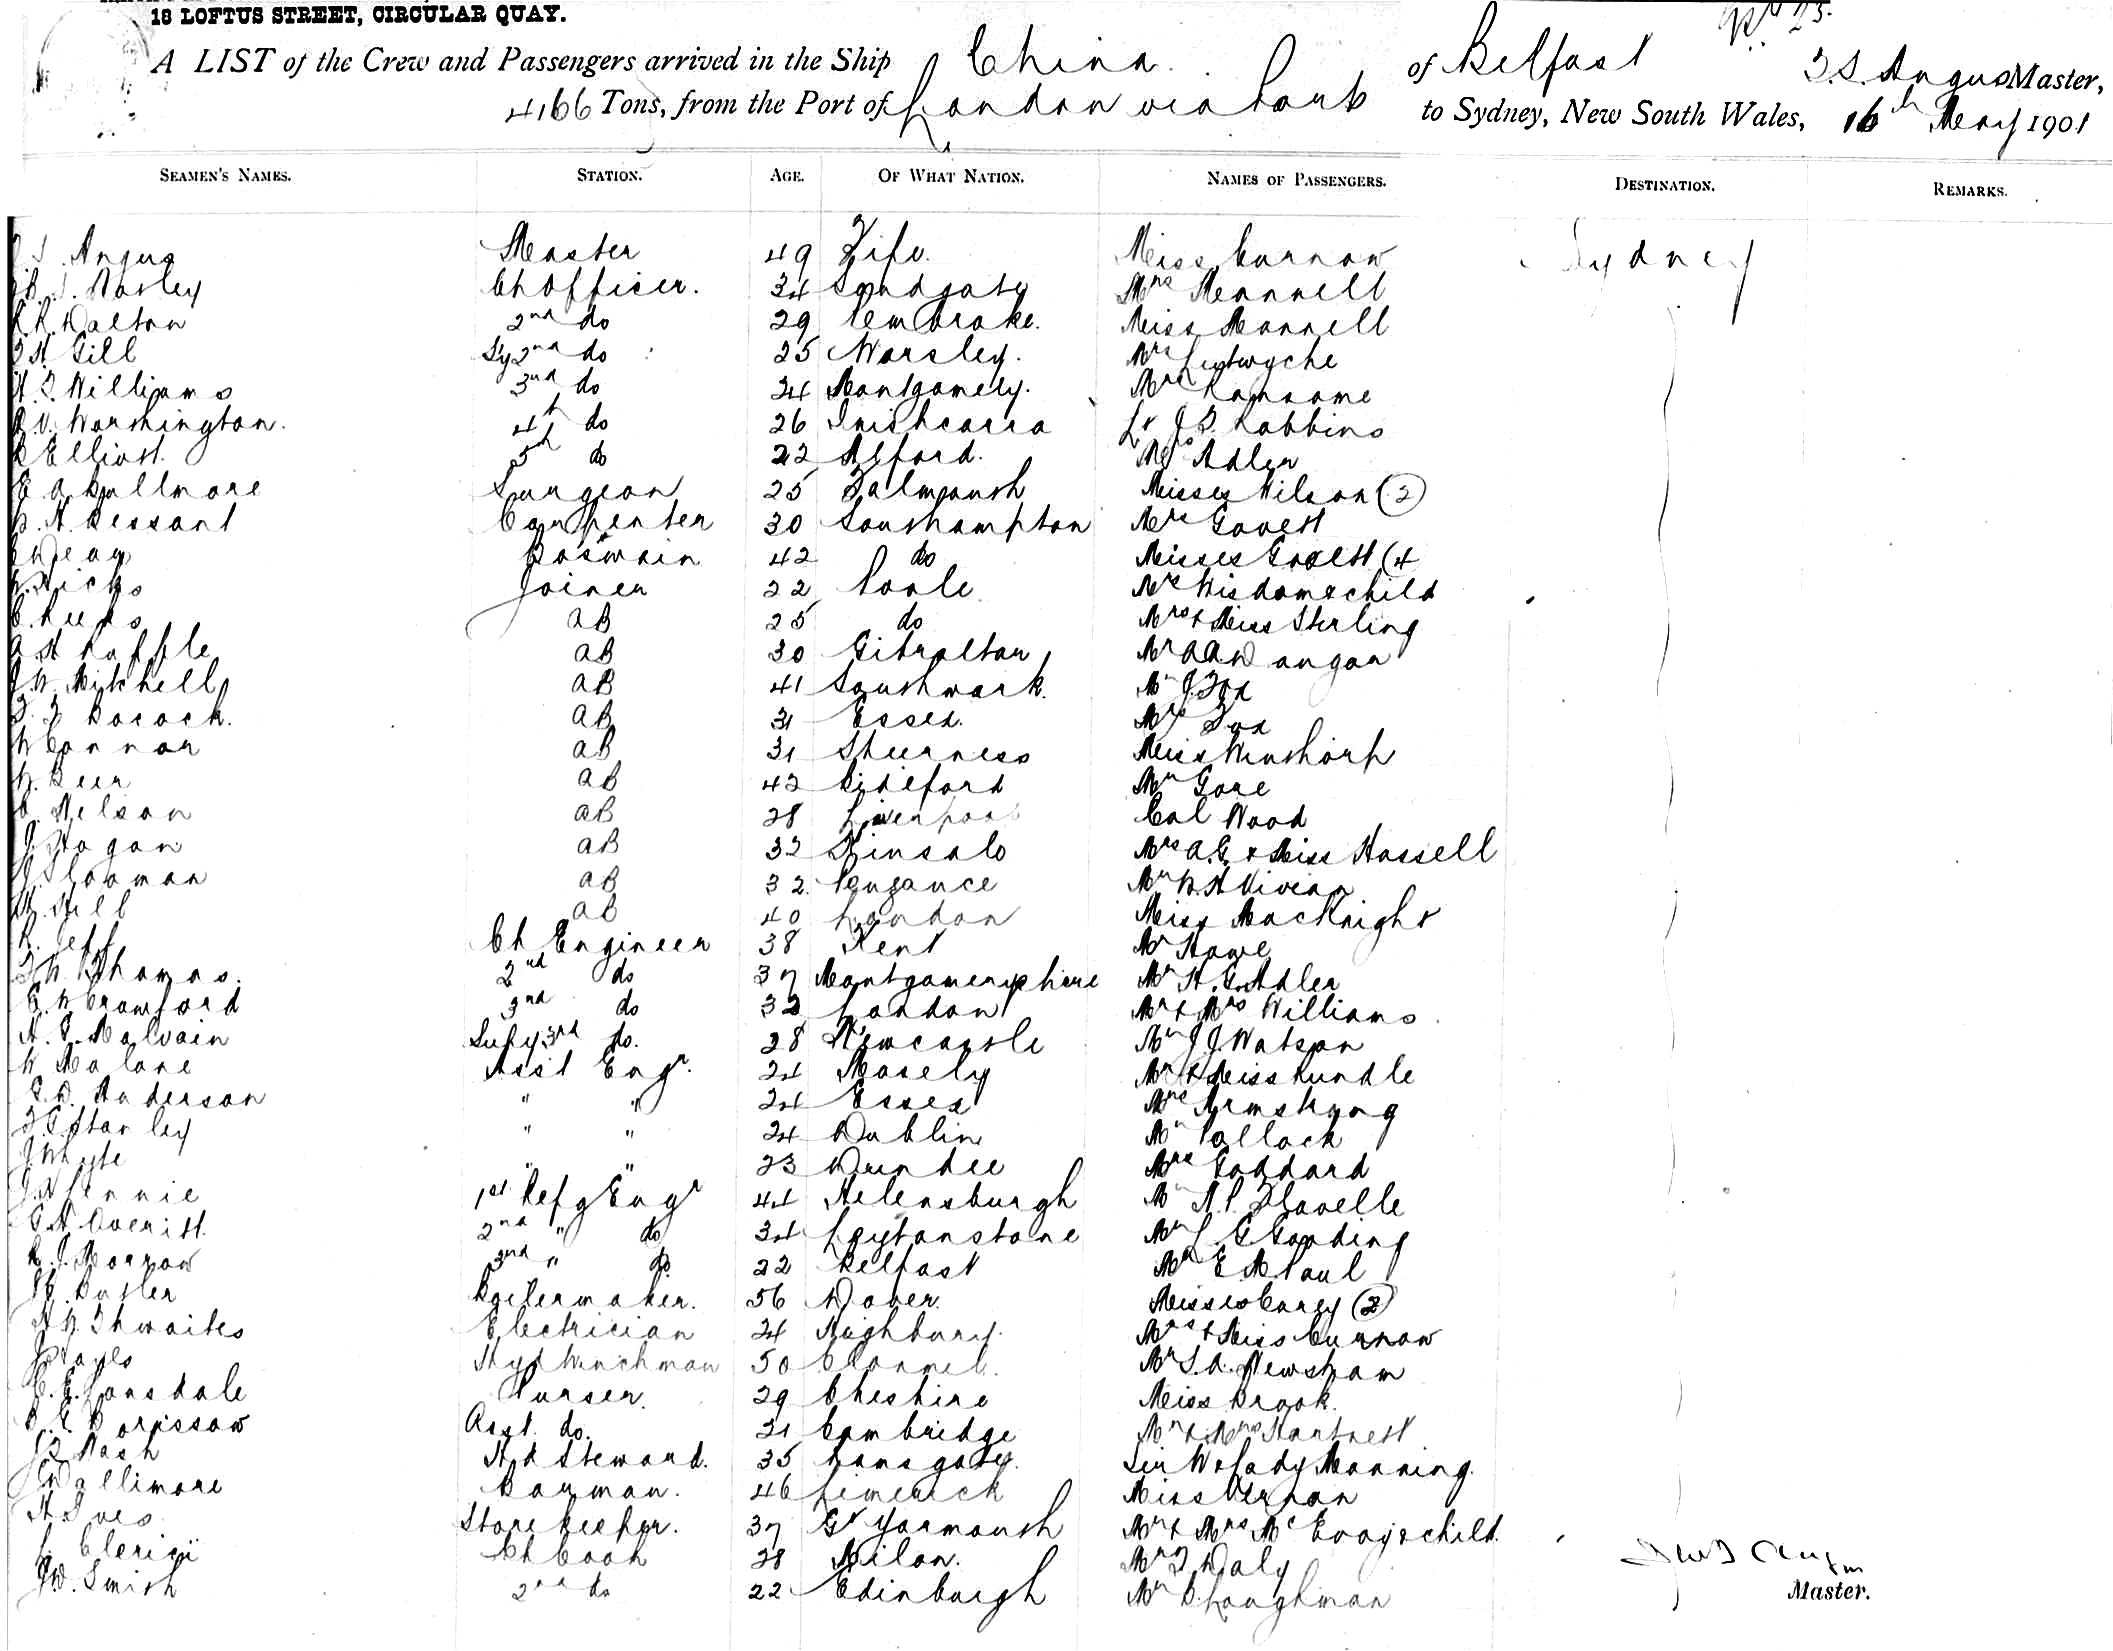 18 LOFTUS STREET, CIRCULAR QUAY.
A LIST of the Crew and Passengers arrived in the Ship China of Belfast Angus Master,
4166 Tons, from the Port of London via Ports to Sydney, New South Wales, 16th May 1901
SEAMEN'S NAMES. STATION. AGE. OF WHAT NATION. NAMES OF PASSENGERS. DESTINATION. REMARKS.
Angus Master 49 Fife. Miss Curnow Sydney
Ch Officer. 34 Sandgate Mrs Mannell
Dalton 2nd do 29 Pembroke. Miss Mannell
Gill Sy 2nd do 25 Worsley. Mrs Lutwyche
Williams 3rd do 24 Montgomery. Mrs Ransome
Warmington. 4th do 26 Inishcarra Robbins
Elliott. 5th do 22 Alford. Adler
Surgeon 25 Falmouth Misses Wilson (2)
Bessant Carpenter 30 Southampton Mrs Govett
Bos'wain 42 do Misses Govett (4
Hicks Joiner 22 Poole Wisdom & child
AB 25 do Mrs & Miss Sterling
Ruffle AB 30 Gibraltar Mr
Mitchell AB 41 Southwark. Mr J. Fox
Bocock. AB 31 Essex. Mrs Fox
Connor AB 31 Sheerness Miss
Beer AB 42 Bideford Mr Gore
Nelson AB 28 Liverpool Col Wood
Hogan AB 32 Kinsale Mrs A.G. & Miss Hassell
Slooman AB 32. Penzance Mr Vivian
Hill AB 40 London Miss MacKnight
Ch Engineer 38 Kent Mr Howe
Thomas. 2nd do 37 Montgomeryshire Mr H. G. Adler
Crawford 3rd do 32 London Mr & Mrs Williams
Supy 3rd do. 28 Newcastle Mr J.J. Watson
Malone Asst Engr. 24 Mosely Mr & Miss Rundle
Anderson " " 24 Essex Mrs Armstrong
Stanley " " 24 Dublin Mr Pollock
Whyte " " 23 Dundee Mrs Goddard
1st Refg Engr 44 Helensburgh Mr Flavelle
Averill 2nd " do 34 Leytonstone Mr Gooding
Morrow 3rd " do 22 Belfast Mr E. M. Paul
Butler Boilermaker. 56 Dover. Misses Carey (2)
Thwaites Electrician 24 Highbury. Mrs & Miss Curnow
Hyd Winchman 50 Mr Newsham
Lonsdale Purser. 29 Cheshire Miss Brook.
Borissow Asst. do. 21 Cambridge Mr & Mrs Hartnett
Nash Hd Steward. 35 Ramsgate. Sir W & Lady Manning.
Dallimore Barman. 46 Limerick Miss Vernon
Ives Storekeeper. 37 Gt Yarmouth Mr & Mrs McEvoy & child
Clerici Ch Cook 28 Milan. Daly
Smith 2nd do 22 Edinburgh Mr Loughman
Master.